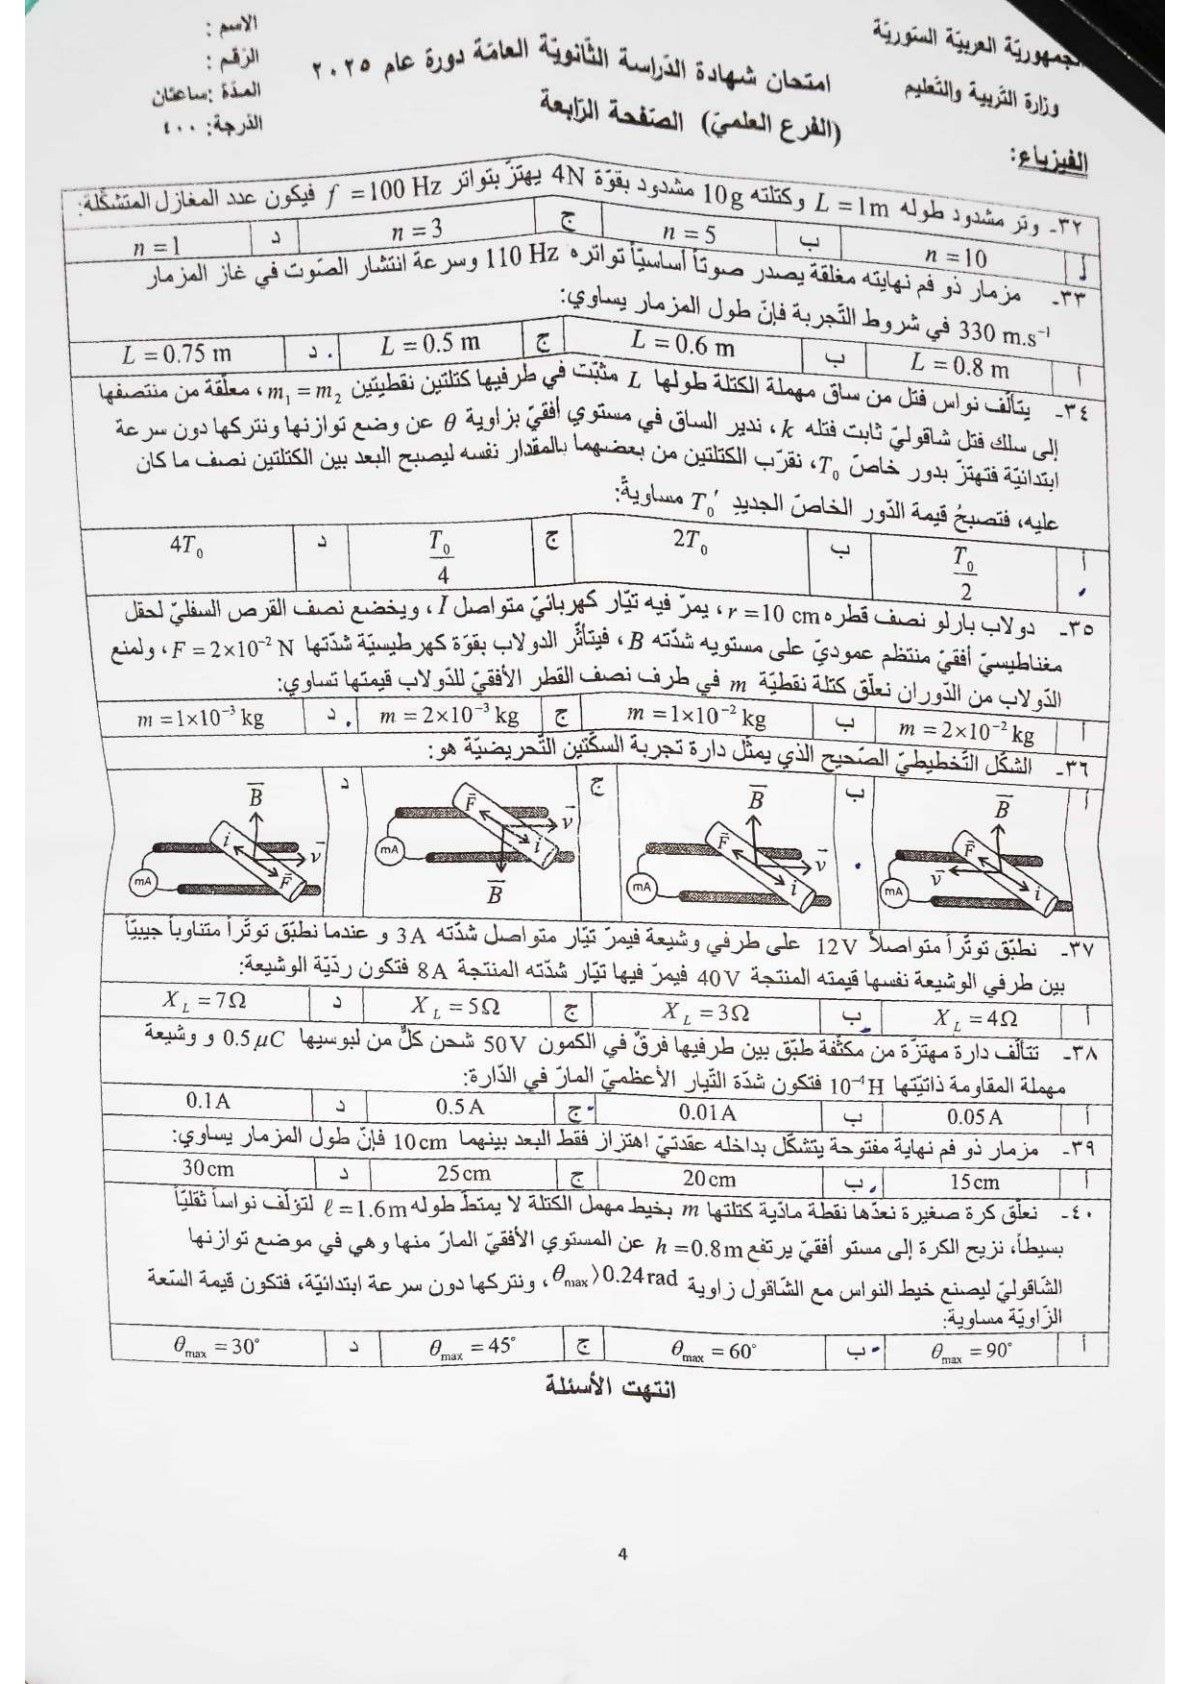 الجمهوريّة العربيّة السّوريّة
وزارة التّربية والتّعليم
الفيزياء:
امتحان شهادة الدّراسة الثّانويّة العامّة دورة عام ٢٠٢٥
(الفرع العلميّ) الصّفحة الرّابعة
الاسم :
الرّقم :
المدّة :ساعتان
الدّرجة: ٤٠٠
٣٢- وتر مشدود طوله L = 1m وكتلته 10g مشدود بقوّة 4N يهتزّ بتواتر f = 100 Hz فيكون عدد المغازل المتشكّلة:
أ n = 10 ب n = 5 ج n = 3 د n = 1
٣٣- مزمار ذو فم نهايته مغلقة يصدر صوتاً أساسيّاً تواتره 110 Hz وسرعة انتشار الصّوت في غاز المزمار
330 m.s⁻¹ في شروط التّجربة فإنّ طول المزمار يساوي:
أ L = 0.8 m ب L = 0.6 m ج L = 0.5 m د L = 0.75 m
٣٤- يتألّف نواس فتل من ساق مهملة الكتلة طولها L مثبّت في طرفيها كتلتين نقطيتين m₁ = m₂، معلّقة من منتصفها
إلى سلك فتل شاقوليّ ثابت فتله k، ندير الساق في مستوي أفقيّ بزاوية θ عن وضع توازنها ونتركها دون سرعة
ابتدائيّة فتهتزّ بدور خاصّ T₀، نقرّب الكتلتين من بعضهما بالمقدار نفسه ليصبح البعد بين الكتلتين نصف ما كان
عليه، فتصبحُ قيمة الدّور الخاصّ الجديدِ T₀′ مساويةً:
أ T₀/2 ب 2T₀ ج T₀/4 د 4T₀
٣٥- دولاب بارلو نصف قطره r = 10 cm، يمرّ فيه تيّار كهربائيّ متواصل I، ويخضع نصف القرص السفليّ لحقل
مغناطيسيّ أفقيّ منتظم عموديّ على مستويه شدّته B، فيتأثّر الدولاب بقوّة كهرطيسيّة شدّتها F = 2×10⁻² N، ولمنع
الدّولاب من الدّوران نعلّق كتلة نقطيّة m في طرف نصف القطر الأفقيّ للدّولاب قيمتها تساوي:
أ m = 2×10⁻² kg ب m = 1×10⁻² kg ج m = 2×10⁻³ kg د m = 1×10⁻³ kg
٣٦- الشكل التّخطيطيّ الصّحيح الذي يمثّل دارة تجربة السكّتين التّحريضيّة هو:
أ B F v i mA ب B F v i mA ج F v i B mA د B i v F mA
٣٧- نطبّق توتّراً متواصلاً 12V على طرفي وشيعة فيمرّ تيّار متواصل شدّته 3A و عندما نطبّق توتّراً متناوباً جيبيّاً
بين طرفي الوشيعة نفسها قيمته المنتجة 40V فيمرّ فيها تيّار شدّته المنتجة 8A فتكون ردّيّة الوشيعة:
أ X_L = 4Ω ب X_L = 3Ω ج X_L = 5Ω د X_L = 7Ω
٣٨- تتألّف دارة مهتزّة من مكثّفة طبّق بين طرفيها فرقٌ في الكمون 50V شحن كلٌّ من لبوسيها 0.5 µC و وشيعة
مهملة المقاومة ذاتيّتها 10⁻⁴H فتكون شدّة التّيار الأعظميّ المارّ في الدّارة:
أ 0.05 A ب 0.01 A ج 0.5 A د 0.1 A
٣٩- مزمار ذو فم نهاية مفتوحة يتشكّل بداخله عقدتيّ اهتزاز فقط البعد بينهما 10cm فإنّ طول المزمار يساوي:
أ 15cm ب 20cm ج 25cm د 30cm
٤٠- نعلّق كرة صغيرة نعدّها نقطة مادّية كتلتها m بخيط مهمل الكتلة لا يمتطّ طوله ℓ = 1.6m لتؤلّف نواساً ثقليّاً
بسيطاً، نزيح الكرة إلى مستو أفقيّ يرتفع h = 0.8m عن المستوي الأفقيّ المارّ منها وهي في موضع توازنها
الشّاقوليّ ليصنع خيط النواس مع الشّاقول زاوية θmax⟩0.24rad، ونتركها دون سرعة ابتدائيّة، فتكون قيمة السّعة
الزّاويّة مساوية:
أ θmax = 90° ب θmax = 60° ج θmax = 45° د θmax = 30°
انتهت الأسئلة
4